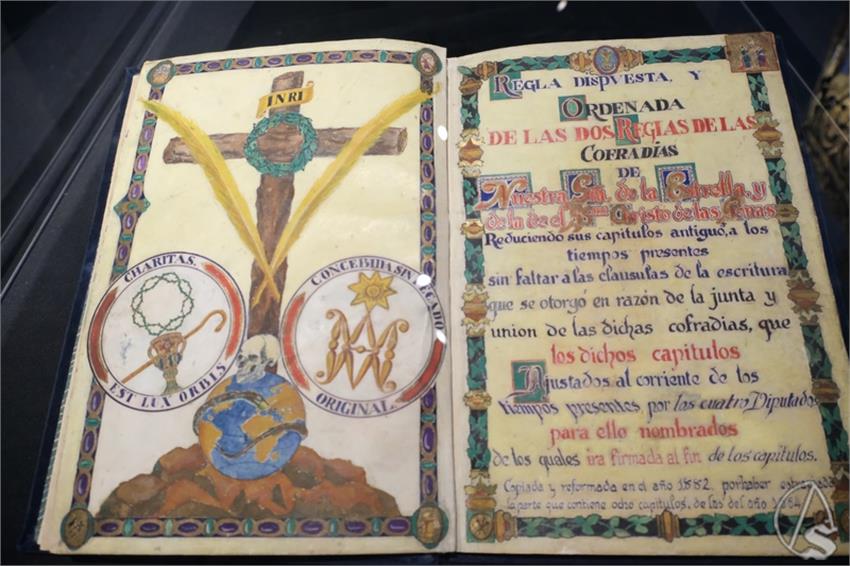 INRI
CHARITAS.
EST LUX ORBIS
CONCEBIDA SIN PECADO
ORIGINAL.
REGLA DISPVESTA, Y
ORDENADA
DE LAS DOS REGLAS DE LAS
COFRADÍAS
DE
Nuestra Sra. de la Estrella, y
de la de el Smo. Christo de las Penas
Reduciendo sus capitulos antiguo, a los
tiempos presentes
sin faltar a las clausulas de la escritura
que se otorgó en razón de la junta y
union de las dichas cofradías, que
los dichos capitulos
Ajustados al corriente de los
tiempos presentes, por los cuatro Diputados
para ello nombrados
de los quales ira firmada al fin de los capitulos.
Copiada y reformada en el año 1882, por haber
la parte que contiene ocho capitulos, de las del año